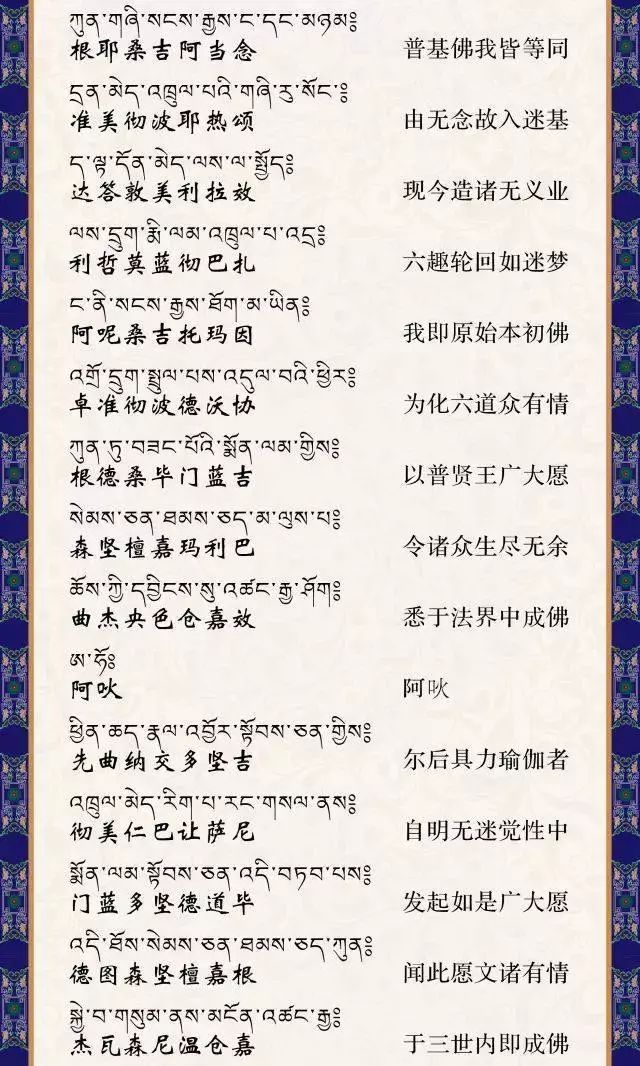 ཀུན་གཞི་སངས་རྒྱས་ང་དང་མཉམ༔
根耶桑吉阿当念 普基佛我皆等同
དྲན་མེད་འཁྲུལ་པའི་གཞི་རུ་སོང་༔
准美彻波耶热颂 由无念故入迷基
ད་ལྟ་དོན་མེད་ལས་ལ་སྤྱོད༔
达答敦美利拉效 现今造诸无义业
ལས་དྲུག་རྨི་ལམ་འཁྲུལ་པ་འདྲ༔
利哲莫蓝彻巴扎 六趣轮回如迷梦
ང་ནི་སངས་རྒྱས་ཐོག་མ་ཡིན༔
阿呢桑吉托玛因 我即原始本初佛
འགྲོ་དྲུག་སྤྲུལ་པས་འདུལ་བའི་ཕྱིར༔
卓准彻波德沃协 为化六道众有情
ཀུན་ཏུ་བཟང་པོའི་སྨོན་ལམ་གྱིས༔
根德桑毕门蓝吉 以普贤王广大愿
སེམས་ཅན་ཐམས་ཅད་མ་ལུས་པ༔
森坚檀嘉玛利巴 令诸众生尽无余
ཆོས་ཀྱི་དབྱིངས་སུ་འཚང་རྒྱ་ཤོག༔
曲杰央色仓嘉效 悉于法界中成佛
ཨ་ཧོ༔
阿吙 阿吙
ཕྱིན་ཆད་རྣལ་འབྱོར་སྟོབས་ཅན་གྱིས༔
先曲纳交多坚吉 尔后具力瑜伽者
འཁྲུལ་མེད་རིག་པ་རང་གསལ་ནས༔
彻美仁巴让萨尼 自明无迷觉性中
སྨོན་ལམ་སྟོབས་ཅན་འདི་བཏབ་པས༔
门蓝多坚德道毕 发起如是广大愿
འདི་ཐོས་སེམས་ཅན་ཐམས་ཅད་ཀུན༔
德图森坚檀嘉根 闻此愿文诸有情
སྐྱེ་བ་གསུམ་ནས་མངོན་འཚང་རྒྱ༔
杰瓦森尼温仓嘉 于三世内即成佛